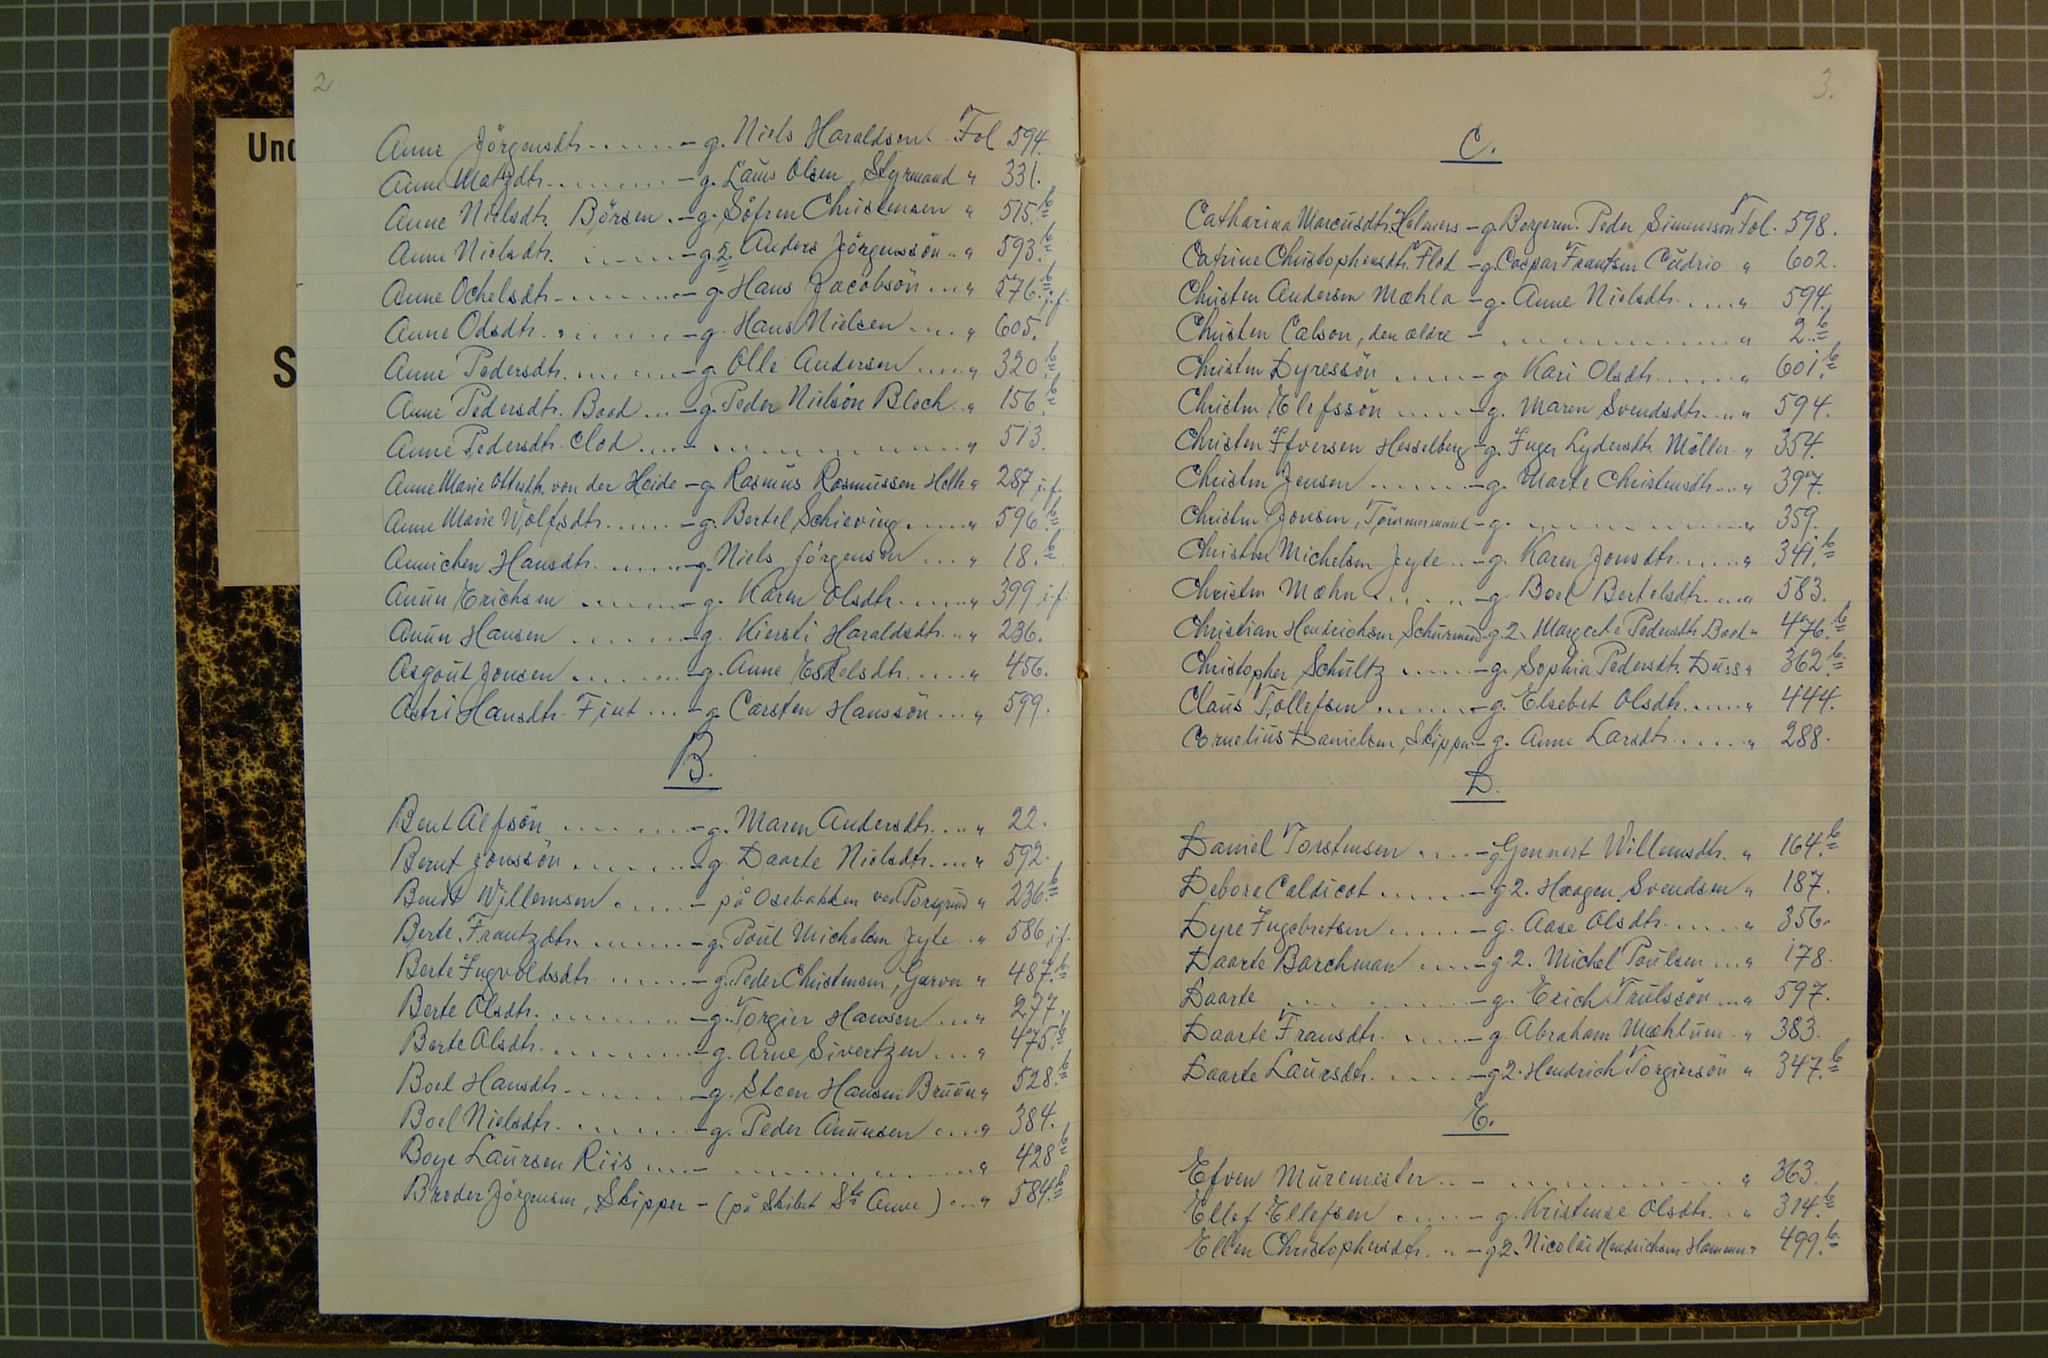 2
Und
S
Anne Jörgensdtr. - g. Niels Haraldsen. Fol 594.
Anne Matzdtr. - g. Laurs Olsen, Styrmand " 331.
Anne Nielsdtr. Börsen - g. Söfren Christensen " 515.b
Anne Nielsdtr. - g 2. Anders Jörgenssön " 593.b
Anne Ochelsdtr. - g. Hans Jacobsön " 576.b j.f.
Anne Odsdtr. - g. Hans Nielsen " 605.
Anne Pedersdtr. - g. Olle Andersen " 320.b
Anne Pedersdtr. Baad - g. Peder Nielsön Bloch " 156.b
Anne Pedersdtr. Clod - " 513.
Anne Marie Ottesdtr. von der Heide - g. Rasmus Rasmussen Holk " 287 j.f.
Anne Marie Wolfsdtr. - g. Bertel Schieving " 596.b
Annichen Hansdtr. - g. Niels Jörgensen " 18.b
Anun Erichsen - g. Karen Olsdtr. " 399 j.f.
Anun Hansen - g. Kiersti Haraldsdtr. " 236.
Asgout Jonsen - g. Anne Eskelsdtr. " 456.
Astri Hansdtr. Fint - g. Carsten Hanssön " 599.
B.
Bent Alfsön - g. Maren Andersdtr. " 22.
Bernt Jonssön - g. Daarte Nielsdtr. " 592.
Bendt Willemsen - på Osebakken ved Porsgrund " 236.b
Berte Frantzdtr. - g. Poul Michelsen Jyte " 586 j.f.
Berte Ingvoldsdtr. - g. Peder Christensen, Garver " 487.b
Berte Olsdtr. - g. Torgier Hansen " 277.
Berte Olsdtr. - g. Arne Sivertzen " 475.b
Boel Hansdtr. - g. Steen Hansen Bruun " 528.b
Boel Nielsdtr. - g. Peder Anunsen " 384.
Boye Laursen Riis - " 428 b
Broder Jörgensen, Skipper - (på Skibet Ste Anne) " 584.b
3.
C.
Catharina Marcusdtr. Holmers - g. Borgerm. Peder Simenssön Fol. 598.
Catrine Christophersdtr. Flod - g. Caspar Frantsen Cudrio " 602.
Christen Andersen Mæhla - g. Anne Nielsdtr. " 594.
Christen Calson, den ældre - " 2.b
Christen Dyressön - g. Kari Olsdtr. " 601.b
Christen Elefssön - g. Maren Svendsdtr. " 594.
Christen Ifversen Hesselberg - g. Inger Lydersdtr. Möller " 354.
Christen Jensen - g. Marte Christensdtr. " 397.
Christen Jonsen, Tömmermand - g. " 359.
Christen Michelsen Jyte - g. Karen Jonsdtr. " 341.b
Christen Mæhn - g. Boel Bertelsdtr. " 583.
Christian Hendrichsen Schurmand - g. 2. Margrete Pedersdtr. Baad " 476.b
Christopher Schultz - g. Sophia Pedersdtr. Duss " 362 b.
Claus Tollefsen - g. Elsebet Olsdtr. " 444.
Cornelius Danielsen, Skipper - g. Anne Larsdtr. " 288.
D.
Daniel Torstensen - g. Gennert Willemsdtr. " 164.b
Debora Caldicot - g 2. Haagen Svendsen " 187.
Dyre Ingebretsen - g. Aase Olsdtr. " 356.
Daarte Barchman - g 2. Michel Poulsen " 178.
Daarte - g. Erich Trulssön " 597.
Daarte Fransdtr. - g. Abraham Mæhlum " 383.
Daarte Laursdtr. - g 2. Hendrich Torgiersön " 347.b
E.
Efven Muremester - " 363.
Ellef Ellefsen - g. Kristense Olsdtr. " 314.b
Ellen Christophersdtr. - g 2. Nicolai Hendrichsen Hammer " 499.b